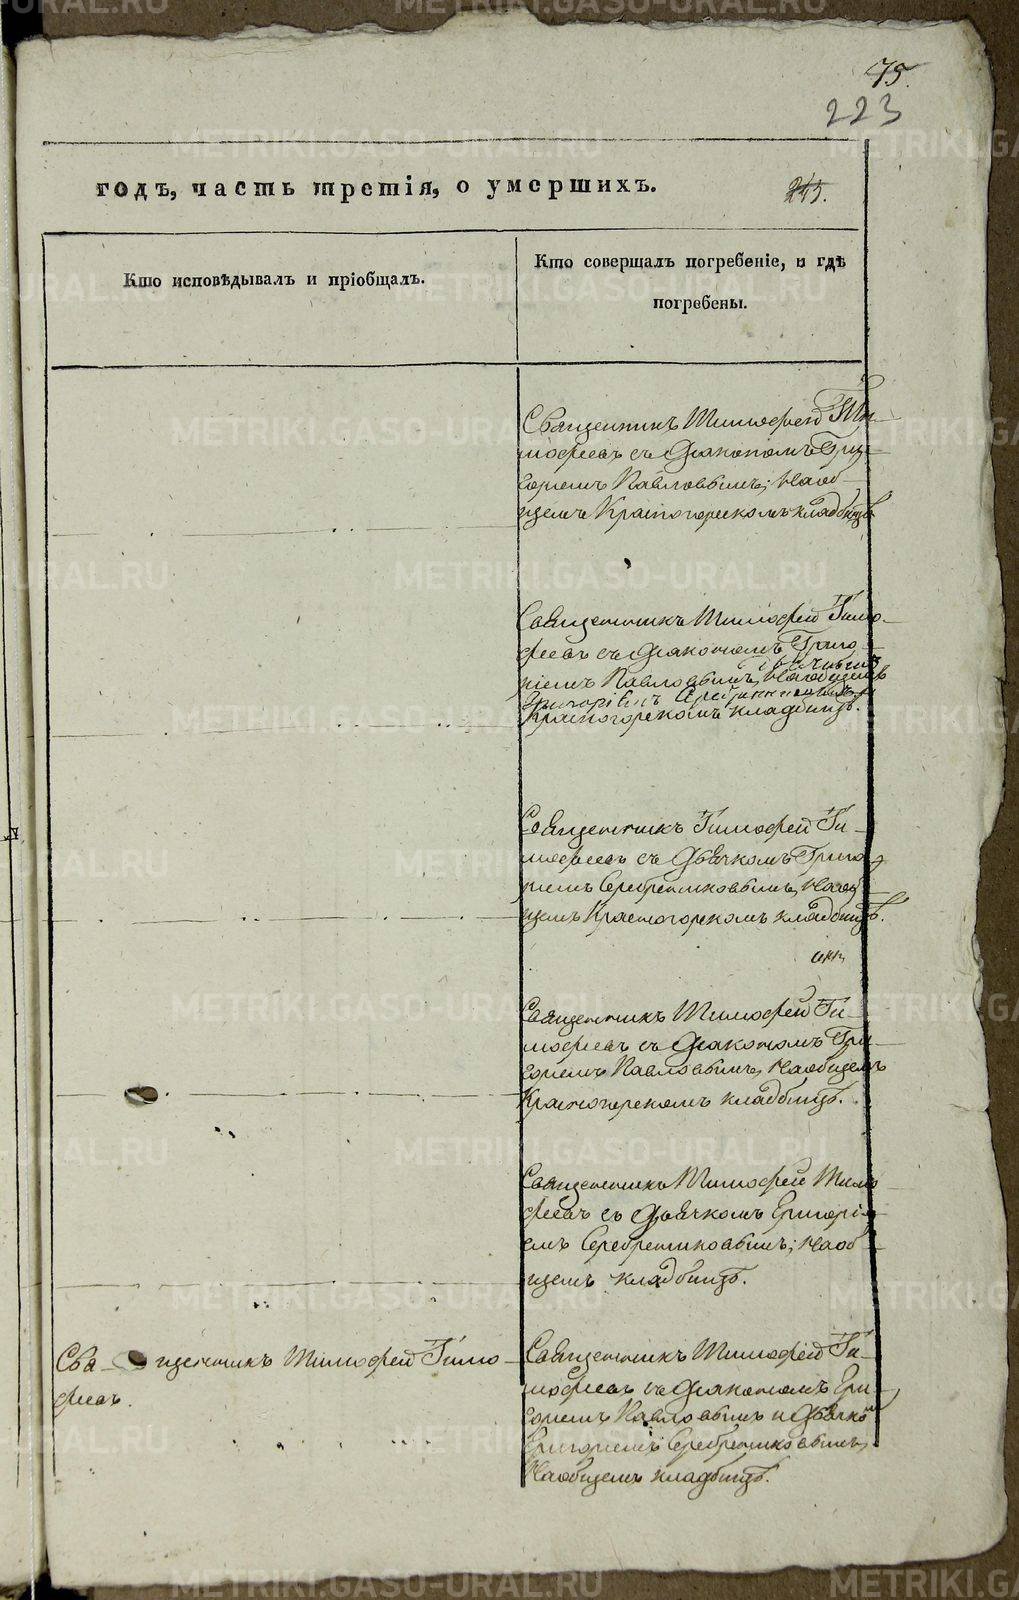 75.
223
годъ, часть третія, о умершихъ.
245.
Кто исповѣдывалъ и пріобщалъ.
Кто совершалъ погребеніе, и гдѣ
погребены.
Священникъ Тимофей Ти-
мофеевъ съ Діакономъ Григ-
горіемъ Павловымъ, на об-
щемъ Красногорскомъ кладбищѣ
Священникъ Тимофей Тимо-
феевъ съ Діакономъ Григо-
ріемъ Павловымъ, на общемъ
Григоріемъ Серебрениковымъ
Красногорскомъ кладбищѣ.
Священникъ Тимофей Ти-
мофеевъ съ Дьячкомъ Григо-
ріемъ Серебрениковымъ, на об-
щемъ Красногорскомъ кладбищѣ.
Священникъ Тимофей Ти-
мофеевъ съ Діакономъ Гри-
горіемъ Павловымъ, на общемъ
Красногорскомъ кладбищѣ.
Священникъ Тимофей Тимо-
феевъ съ Дьячкомъ Григорі-
емъ Серебрениковымъ, на об-
щемъ кладбищѣ.
Священникъ Тимофей Тимо-
феевъ.
Священникъ Тимофей Ти-
мофеевъ съ Діакономъ Гри-
горіемъ Павловымъ и Дьячко
Григоріемъ Серебрениковымъ,
на общемъ кладбищѣ.
METRIKI.GASO-URAL.RU